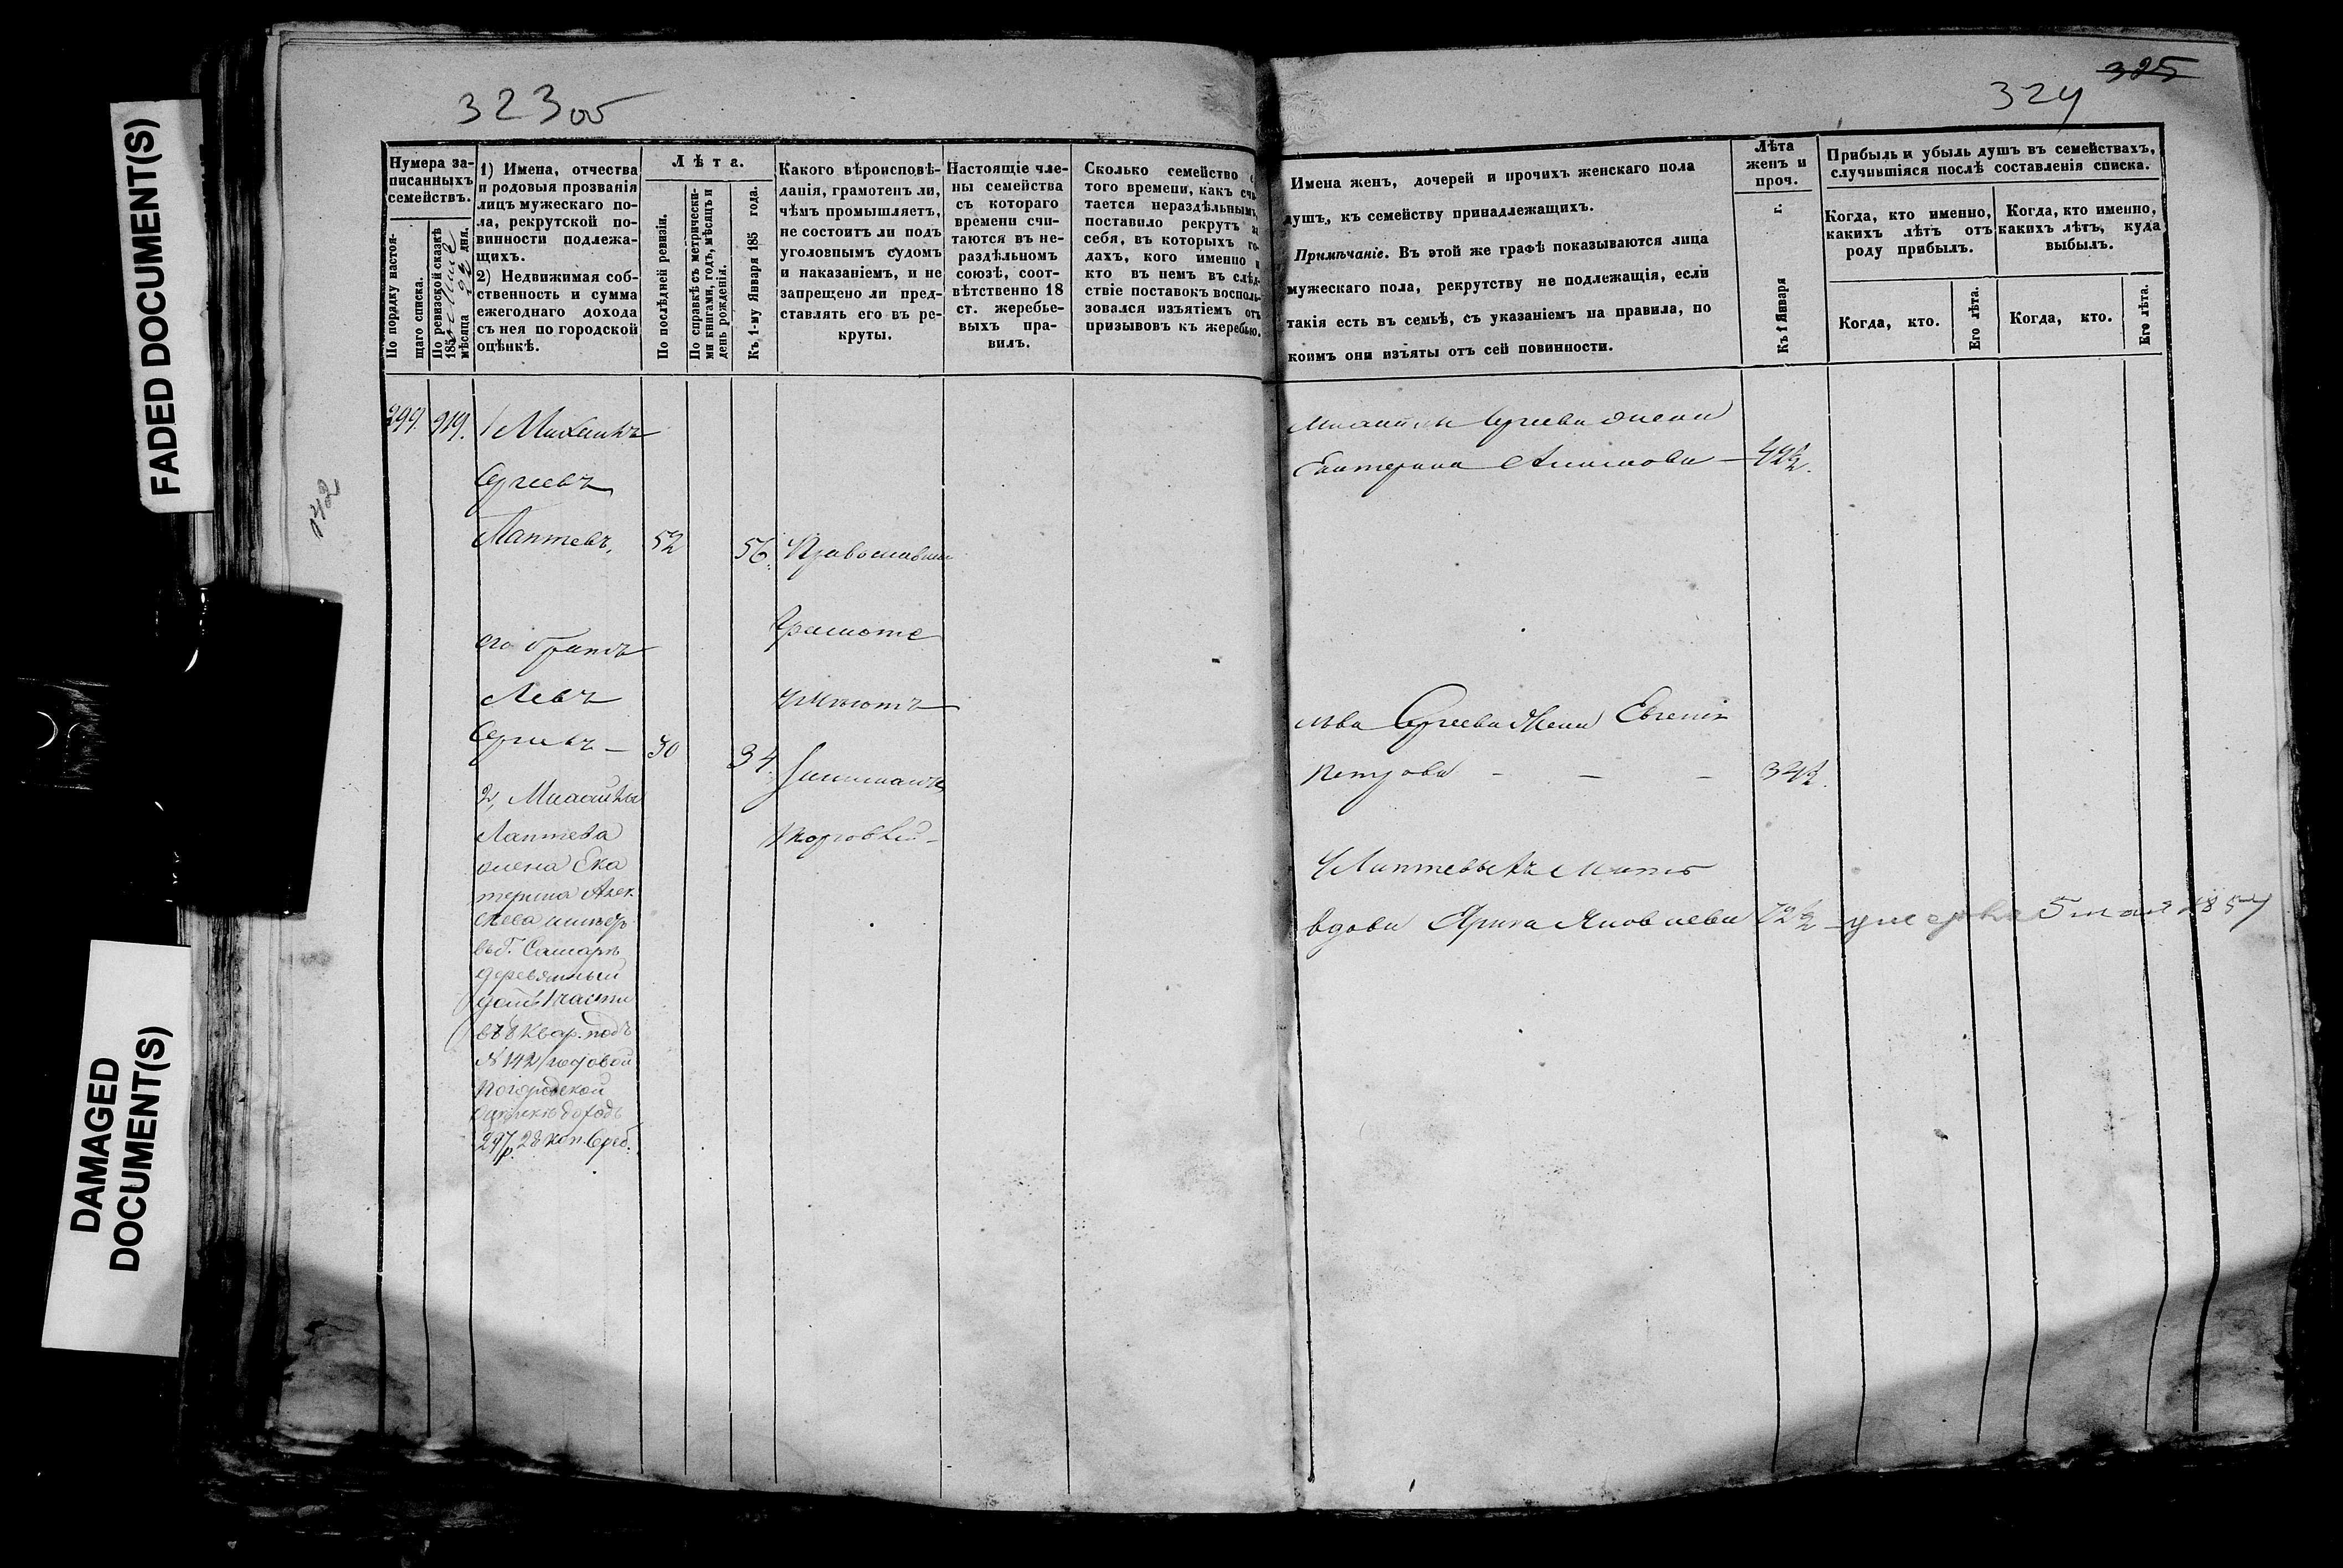 FADED DOCUMENT(S)
DAMAGED
DOCUMENT(S)
323 об
Нумера за-
писанныхъ
семействъ.
По порядку настоя-
щаго списка.
По ревизской сказкѣ
185 мѣсяца 22 дня.
1) Имена, отчества
и родовыя прозванія
лицъ мужескаго по-
ла, рекрутской по-
винности подлежа-
щихъ.
2) Недвижимая соб-
ственность и сумма
ежегоднаго дохода
съ нея по городской
оцѣнкѣ.
Лѣта.
По послѣдней ревизіи.
По справкѣ съ метрически-
ми книгами, годъ, мѣсяцъ и
день рожденія.
Къ 1-му Января 185 года.
Какого вѣроисповѣ-
данія, грамотенъ ли,
чѣмъ промышляетъ,
не состоитъ ли подъ
уголовнымъ судомъ
и наказаніемъ, и не
запрещено ли пред-
ставлять его въ ре-
круты.
Настоящіе чле-
ны семейства
съ котораго
времени счи-
таются въ не-
раздѣльномъ
союзѣ, соот-
вѣтственно 18
ст. жеребье-
выхъ пра-
вилъ.
Сколько семейство с
того времени, какъ счи
тается нераздѣльнымъ,
поставило рекрутъ за
себя, въ которыхъ го-
дахъ, кого именно и
кто въ немъ въ слѣд-
ствіе поставокъ восполь-
зовался изъятіемъ отъ
призывовъ къ жеребью.
142
299. 919. 1 Михаилъ
Сергеевъ
Лаптевъ, 52 56. Православны
его братъ
Левъ
Сергеевъ — 30 34.
Грамоте
умѣютъ
занимаютъ
торговлей —
2, Михайлы
Лаптева
жена Ека
терина Алек
сеева имѣетъ
въ г. Самаръ
деревянный
домъ 1 части
въ 8 квар. подъ
№ 142 годовой
по городской
оценкѣ доходъ
297 р. 28 коп. Среб.
325
324
Имена женъ, дочерей и прочихъ женскаго пола
душъ, къ семейству принадлежащихъ.
Примѣчаніе. Въ этой же графѣ показываются лица
мужескаго пола, рекрутству не подлежащія, если
такія есть въ семьѣ, съ указаніемъ на правила, по
коимъ они изъяты отъ сей повинности.
Лѣта
женъ и
проч.
Къ 1 Января г.
Прибыль и убыль душъ въ семействахъ,
случившіяся послѣ составленія списка.
Когда, кто именно,
какихъ лѣтъ отъ
роду прибылъ.
Когда, кто именно,
какихъ лѣтъ, куда
выбылъ.
Когда, кто.
Его лѣта.
Когда, кто.
Его лѣта.
Михайлы Сергеева жена
Екатерина — 42½.
Льва Сергеева жена Евгенія
Петрова — — — 34½.
У Лаптевыхъ мать
вдова Ирина Яковлева 72½ — умерла 5 мая 1857